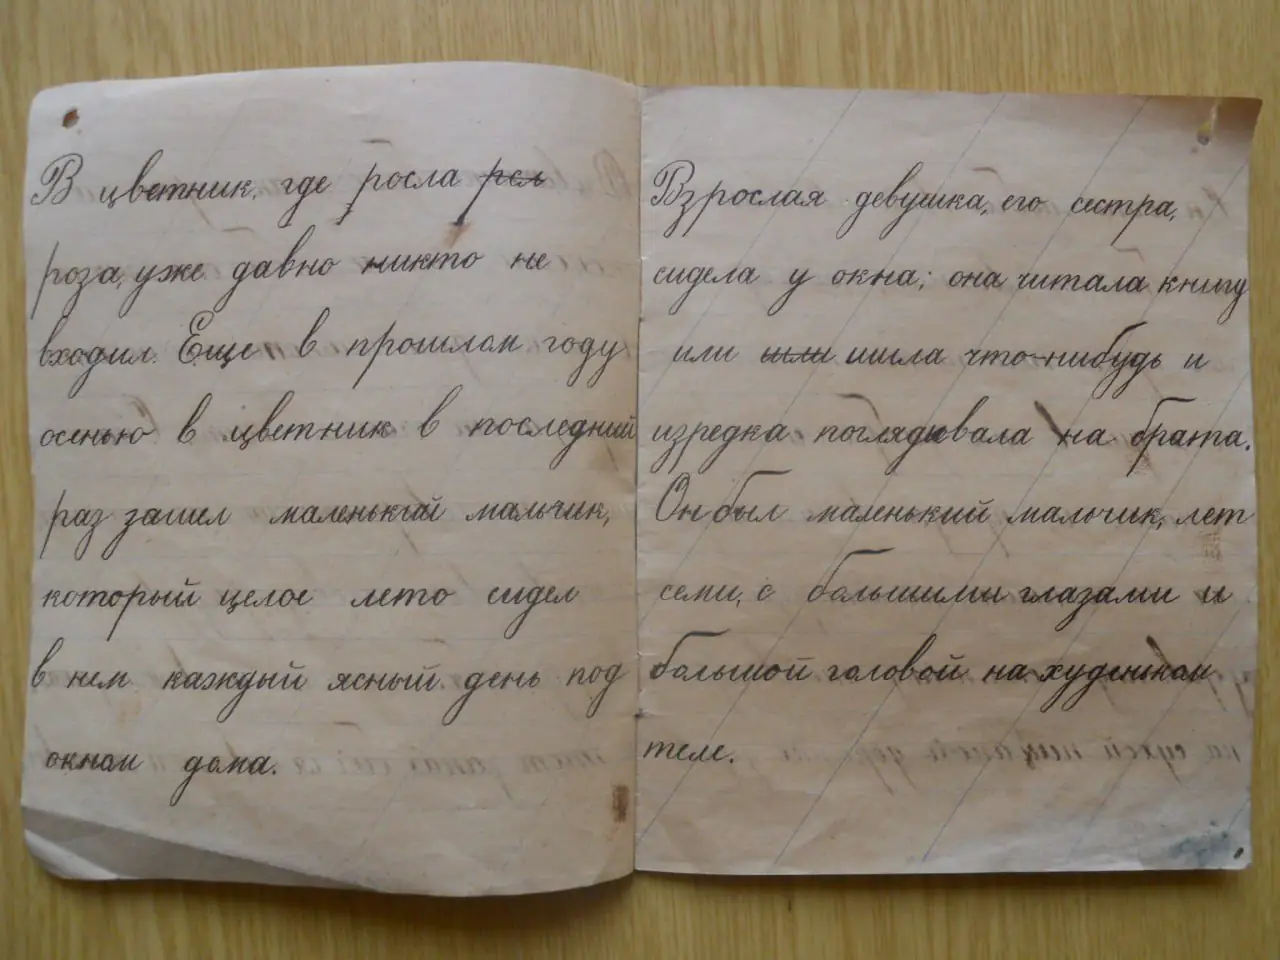 В цветник, где росла рсл
роза, уже давно никто не
входил. Еще в прошлом году
осенью в цветник в последний
раз зашел маленький мальчик,
который целое лето сидел
в нем каждый ясный день под
окном дома.
Взрослая девушка, его сестра,
сидела у окна; она читала книгу
или шли шила что-нибудь и
изредка поглядывала на брата.
Он был маленький мальчик, лет
семи, с большими глазами и
большой головой на худеньком
теле.